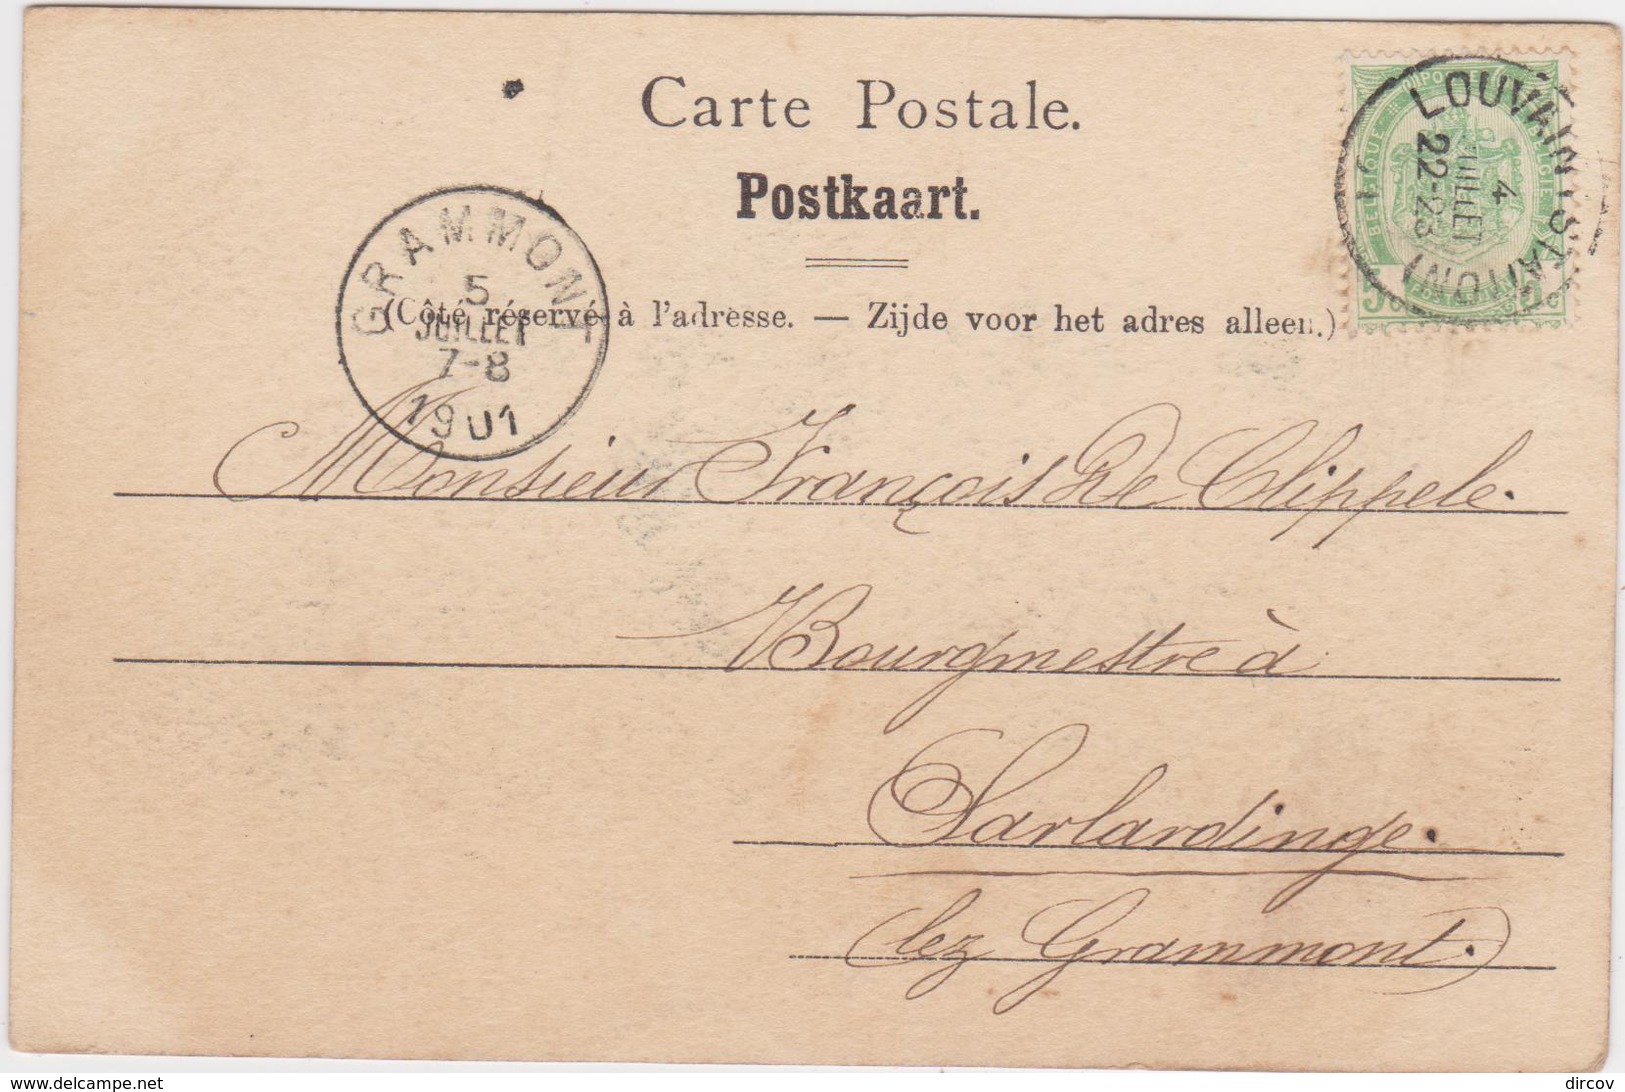 Carte Postale.
Postkaart.
(Côté réservé à l'adresse. — Zijde voor het adres alleen.)
LOUVAIN (STATION)
4
JUILLET
22-23
GRAMMONT
5
JUILLET
7-8
1901
Monsieur François De Clippele.
Bourgmestre à
Sarlardinge.
(lez Grammont.)
www.delcampe.net
dircov